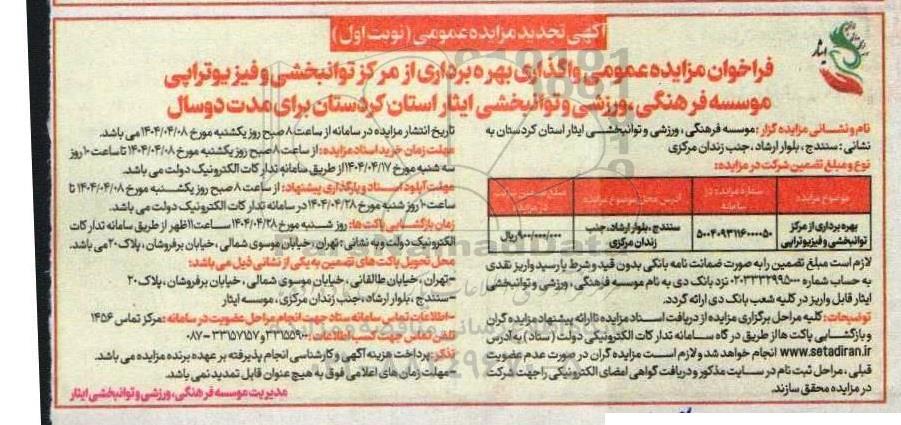 آگهی تجدید مزایده عمومی (نوبت اول)
ایثار
فراخوان مزایده عمومی واگذاری بهره برداری از مرکز توانبخشی و فیزیوتراپی
موسسه فرهنگی، ورزشی و توانبخشی ایثار استان کردستان برای مدت دو سال
نام و نشانی مزایده گزار: موسسه فرهنگی، ورزشی و توانبخشی ایثار استان کردستان به
نشانی: سنندج، بلوار ارشاد، جنب زندان مرکزی
نوع و مبلغ تضمین شرکت در مزایده:
موضوع مزایده
شماره مزایده در سامانه
آدرس محل موضوع مزایده
مبلغ تضمین شرکت در مزایده
بهره برداری از مرکز توانبخشی و فیزیوتراپی
۵۰۰۴۰۹۳۱۱۶۰۰۰۰۵۰
سنندج، بلوار ارشاد، جنب زندان مرکزی
۹۰۰/۰۰۰/۰۰۰ ریال
لازم است مبلغ تضمین را به صورت ضمانت نامه بانکی بدون قید و شرط یا رسید واریز نقدی
به حساب شماره ۰۲۰۳۳۳۲۹۹۵۰۰۰ نزد بانک دی به نام موسسه فرهنگی، ورزشی و توانبخشی
ایثار قابل واریز در کلیه شعب بانک دی ارائه گردد.
توضیحات: کلیه مراحل برگزاری مزایده از دریافت اسناد مزایده تا ارائه پیشنهاد مزایده گران
و بازگشایی پاکت ها از طریق درگاه سامانه تدارکات الکترونیکی دولت (ستاد) به آدرس
www.setadiran.ir انجام خواهد شد و لازم است مزایده گران در صورت عدم عضویت
قبلی، مراحل ثبت نام در سایت مذکور و دریافت گواهی امضای الکترونیکی را جهت شرکت
در مزایده محقق سازند.
تاریخ انتشار مزایده در سامانه از ساعت ۸ صبح روز یکشنبه مورخ ۱۴۰۴/۰۴/۰۸ می باشد.
مهلت زمان خرید اسناد مزایده: از ساعت ۸ صبح روز یکشنبه مورخ ۱۴۰۴/۰۴/۰۸ تا ساعت ۱۰ روز
سه شنبه مورخ ۱۴۰۴/۰۴/۱۷ از طریق سامانه تدارکات الکترونیک دولت می باشد.
مهلت آپلود اسناد و بارگذاری پیشنهاد: از ساعت ۸ صبح روز یکشنبه مورخ ۱۴۰۴/۰۴/۰۸ تا
ساعت ۱۰ روز شنبه مورخ ۱۴۰۴/۰۴/۲۸ در سامانه تدارکات الکترونیک دولت می باشد.
زمان بازگشایی پاکت ها: روز شنبه مورخ ۱۴۰۴/۰۴/۲۸ ساعت ۱۱ ظهر از طریق سامانه تدارکات
الکترونیک دولت و به نشانی: تهران، خیابان موسوی شمالی، خیابان برفروشان، پلاک ۲۰ می باشد.
محل تحویل پاکت های تضمین به یکی از نشانی ذیل می باشد:
-تهران، خیابان طالقانی، خیابان موسوی شمالی، خیابان برفروشان، پلاک ۲۰
-سنندج، بلوار ارشاد، جنب زندان مرکزی، موسسه ایثار
-اطلاعات تماس سامانه ستاد جهت انجام مراحل عضویت در سامانه: مرکز تماس ۱۴۵۶
تلفن تماس جهت کسب اطلاعات: ۳۳۱۵۵۹۰۰ و ۳۳۱۵۷۷۵۷-۰۸۷
تذکر: پرداخت هزینه آگهی و کارشناسی انجام پذیرفته بر عهده برنده مزایده می باشد.
-مهلت زمان های اعلامی فوق به هیچ عنوان قابل تمدید نمی باشد.
مدیریت موسسه فرهنگی، ورزشی و توانبخشی ایثار